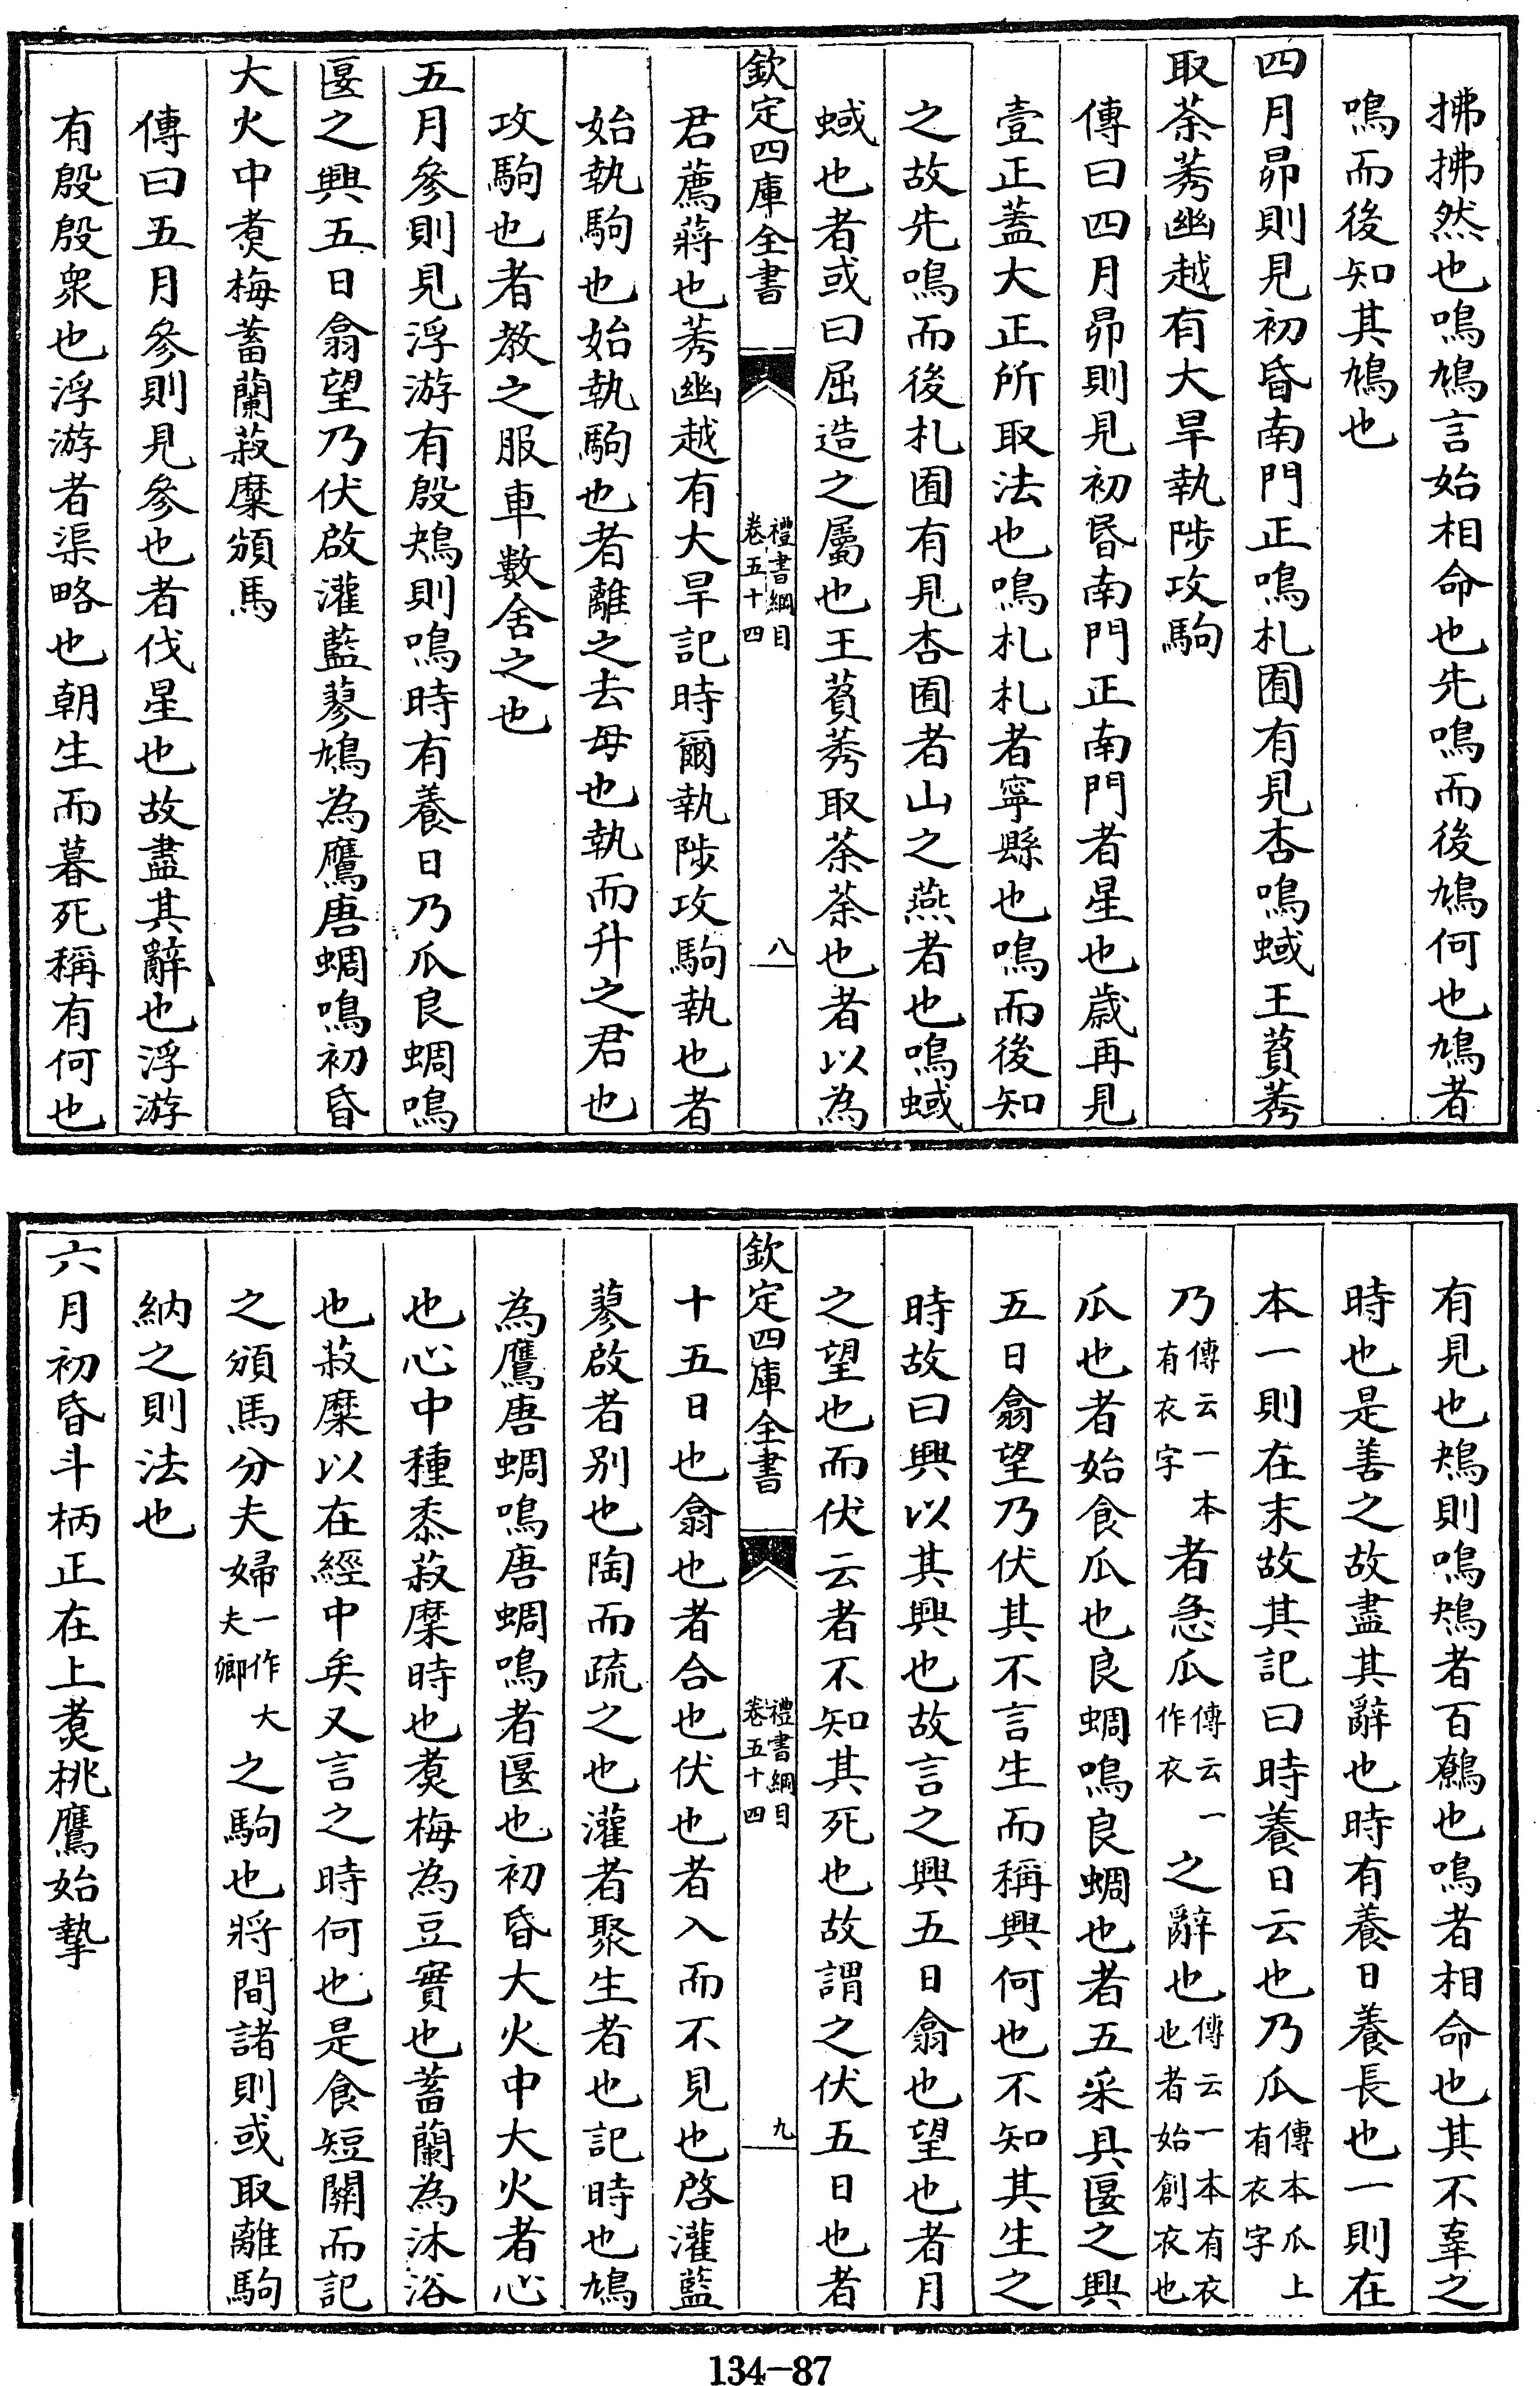 拂拂然也鳴鳩言始相命也先鳴而後鳩何也鳩者
鳴而後知其鳩也
四月昴則見初昏南門正鳴札囿有見杏鳴蜮王萯莠
取荼莠幽越有大旱執陟攻駒
傳曰四月昴則見初昏南門正南門者星也歲再見
壹正蓋大正所取法也鳴札札者寧縣也鳴而後知
之故先鳴而後札囿有見杏囿者山之燕者也鳴蜮
蜮也者或曰屈造之屬也王萯莠取荼荼也者以為
欽定四庫全書
禮書綱目
卷五十四
八
君薦蔣也莠幽越有大旱記時爾執陟攻駒執也者
始執駒也始執駒也者離之去母也執而升之君也
攻駒也者教之服車數舍之也
五月參則見浮游有殷鴂則鳴時有養日乃瓜良蜩鳴
匽之興五日翕望乃伏啟灌藍蓼鳩為鷹唐蜩鳴初昏
大火中煑梅蓄蘭菽糜頒馬
傳曰五月參則見參也者伐星也故盡其辭也浮游
有殷殷衆也浮游者渠略也朝生而暮死稱有何也
有見也鴂則鳴鴂者百鷯也鳴者相命也其不辜之
時也是善之故盡其辭也時有養日養長也一則在
本一則在末故其記曰時養日云也乃瓜傳本瓜上有衣字
乃傳云一本有衣字者急瓜傳云一作衣之辭也傳云一本有衣也者始創衣也
瓜也者始食瓜也良蜩鳴良蜩也者五采具匽之興
五日翕望乃伏其不言生而稱興何也不知其生之
時故曰興以其興也故言之興五日翕也望也者月
之望也而伏云者不知其死也故謂之伏五日也者
欽定四庫全書
禮書綱目
卷五十四
九
十五日也翕也者合也伏也者入而不見也啓灌藍
蓼啟者別也陶而疏之也灌者聚生者也記時也鳩
為鷹唐蜩鳴唐蜩鳴者匽也初昏大火中大火者心
也心中種黍菽糜時也煑梅為豆實也蓄蘭為沐浴
也菽糜以在經中矣又言之時何也是食短關而記
之頒馬分夫婦一作大夫卿之駒也將間諸則或取離駒
納之則法也
六月初昏斗柄正在上煑桃鷹始摯
134-87